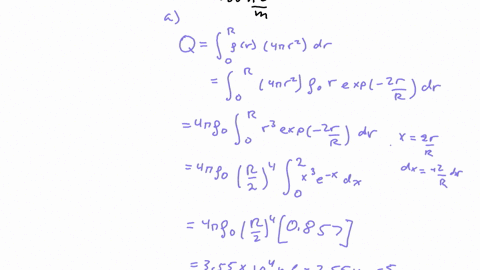 a)
Q = ∫₀ᴿ ρ(r) (4πr²) dr
= ∫₀ᴿ (4πr²) ρ₀ r exp(-2r/R) dr
= 4πρ₀ ∫₀ᴿ r³ exp(-2r/R) dr
x = 2r/R
= 4πρ₀ (R/2)⁴ ∫₀² x³ e⁻ˣ dx
dx = +2/R dr
= 4πρ₀ (R/2)⁴ [0.857]